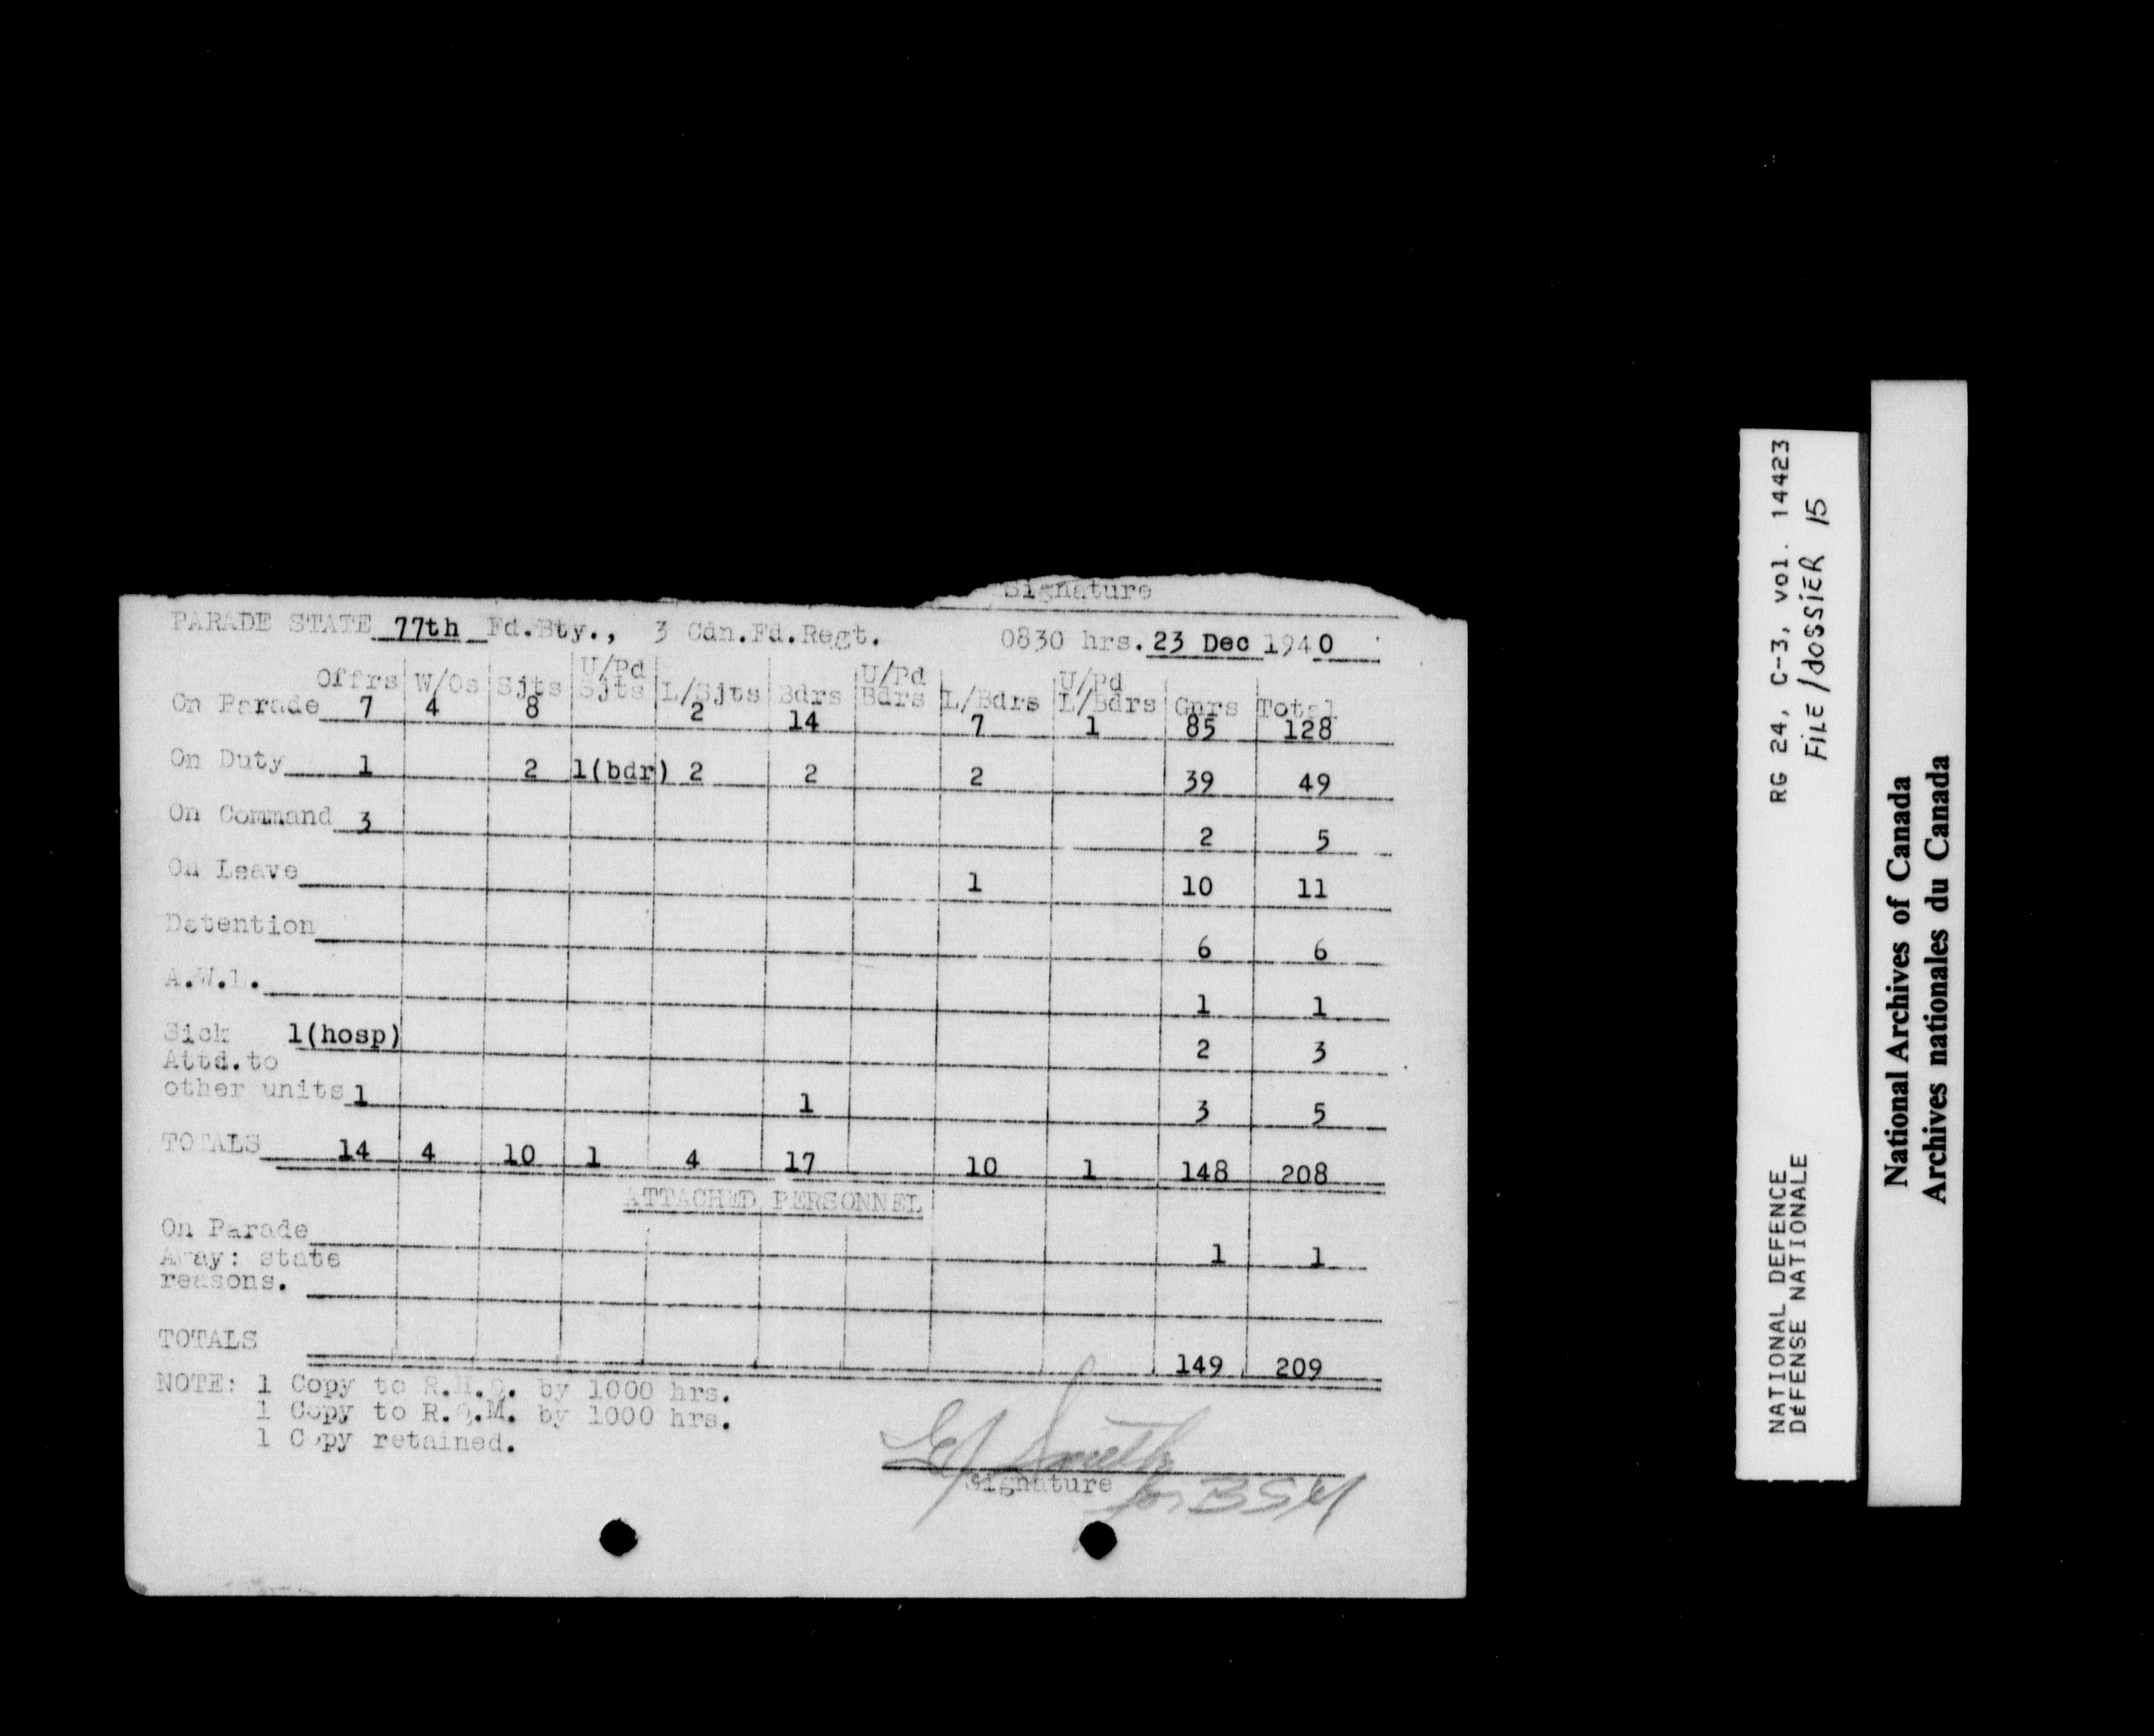 Signature
PARADE STATE 77th Fd.Bty., 3 Cdn.Fd.Regt. 0830 hrs. 23 Dec 1940
Offrs W/Os Sjts U/Pd Sjts L/Sjts Bdrs U/Pd Bdrs L/Bdrs U/Pd L/Bdrs Gnrs Total
On Parade 7 4 8 2 14 7 1 85 128
On Duty 1 2 1(bdr) 2 2 2 39 49
On Command 3 2 5
On Leave 1 10 11
Detention 6 6
A.W.L. 1 1
Sick 1(hosp) 2 3
Attd.to
other units 1 1 3 5
TOTALS 14 4 10 1 4 17 10 1 148 208
ATTACHED PERSONNEL
On Parade 1 1
Away: state
reasons.
TOTALS 149 209
NOTE: 1 Copy to R.H.Q. by 1000 hrs.
1 Copy to R.Q.M. by 1000 hrs.
1 Copy retained.
Smith
Signature for BSM
RG 24, C-3, vol. 14423
FILE/dOSSIER 15
NATIONAL DEFENCE
DÉFENSE NATIONALE
National Archives of Canada
Archives nationales du Canada